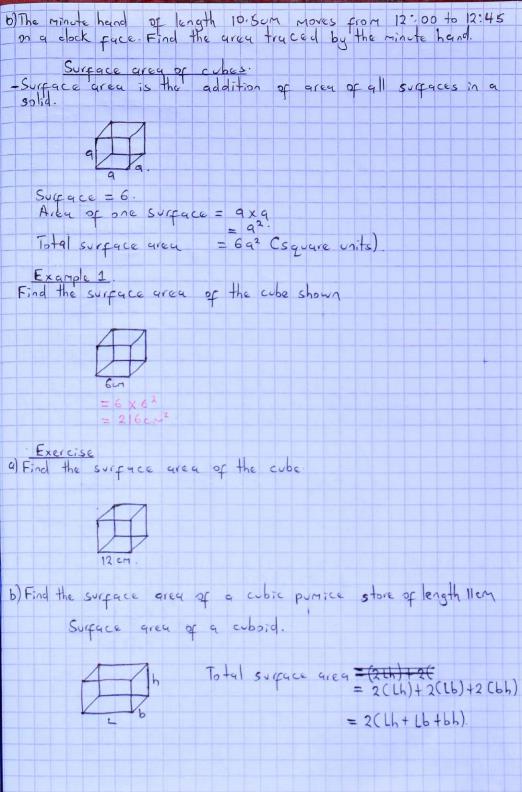 b) The minute hand of length 10.5cm moves from 12:00 to 12:45
on a clock face. Find the area traced by the minute hand.
Surface area of cubes.
- Surface area is the addition of area of all surfaces in a
solid.
a
a
a.
Surface = 6.
Area of one surface = a x a
= a².
Total surface area = 6a² (square units).
Example 1
Find the surface area of the cube shown
6cm
= 6 x 6²
= 216cm²
Exercise
a) Find the surface area of the cube
12 cm.
b) Find the surface area of a cubic pumice stone of length 11cm
Surface area of a cuboid.
h
b
L
Total surface area = (2Lh) + 2(
= 2(Lh) + 2(Lb) + 2(bh)
= 2(Lh + Lb + bh)